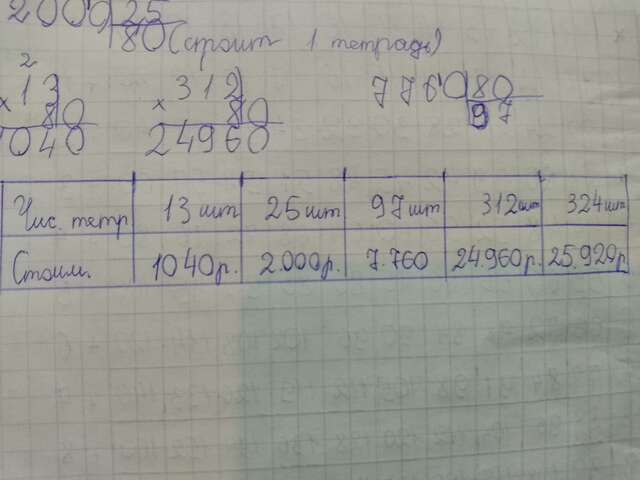 2000 25
80 (стоит 1 тетрадь)
2
13 312 7760 80
× 80 × 80 97
1040 24960
Чис. тетр 13 шт 25 шт 97 шт 312 шт 324 шт
Стоим. 1040р. 2.000р. 7.760 24.960р. 25.920р